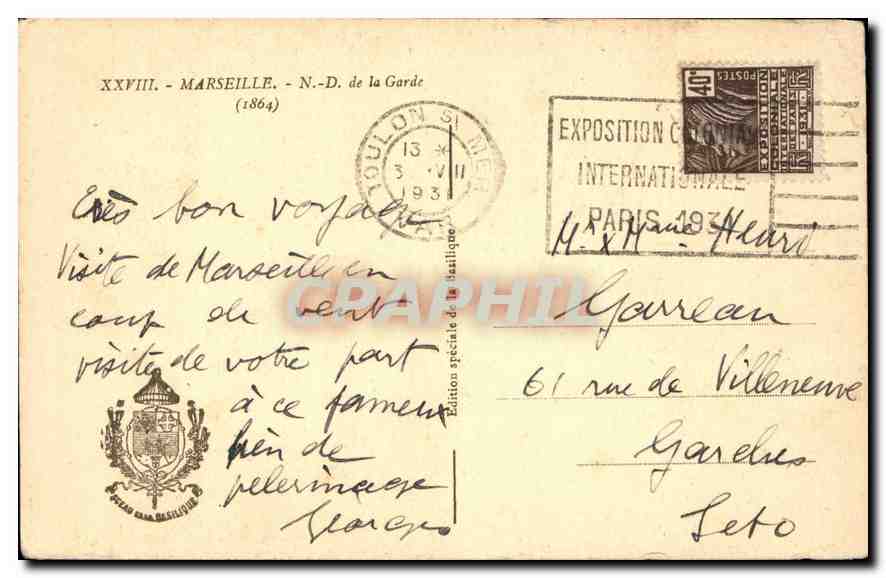 XXVIII. - MARSEILLE. - N.-D. de la Garde
(1864)
TOULON S/ MER
13 *
3 VII
1931
VAR
EXPOSITION COLONIALE
INTERNATIONALE
PARIS 1931
40c
POSTES
EXPOSITION
COLONIALE
INTERNATIONALE
DE PARIS
1931
RF
Très bon voyage
Visite de Marseille en
coup de vent
visite de votre part
à ce fameux
lien de
pelerinage
Georges
Edition spéciale de la Basilique
SCEAU DE LA BASILIQUE
Mr x Mme Henri
Garreau
61 rue de Villeneuve
Garches
Seto
CPAPHIL